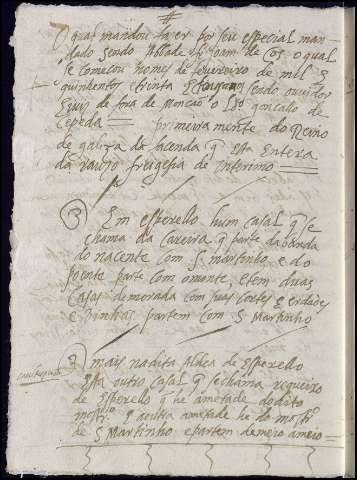 O qual mandou fazer por seu especial man
dado sendo Abbade Dõ Joam de Cos o qual
se comecou no mes de feuereiro de mil &
quinhentos & trinta & sendo ouuidor
& Juiz de fora de Moncão o Ldo goncallo de
Cepeda primeiramente do Reino
de galiza da fazenda q̃ esta Entera
da Raujo freigesia de
Em esperello hum casal q̃ se
chama da Careira q̃ parte da banda
do nacente com S. martinho e do
poente parte com o monte, e tem duas
Casas de morada com suas cortes e erdades
e Vinhas partem com S. Martinho
mais na dita Aldea de Esperello
esta outro casal q̃ se chama regueiro
de Esperello q̃ he ametade do dito
mostr.º e a outra ametade he do mostr.º
de S Martinho e partem de meio a meio